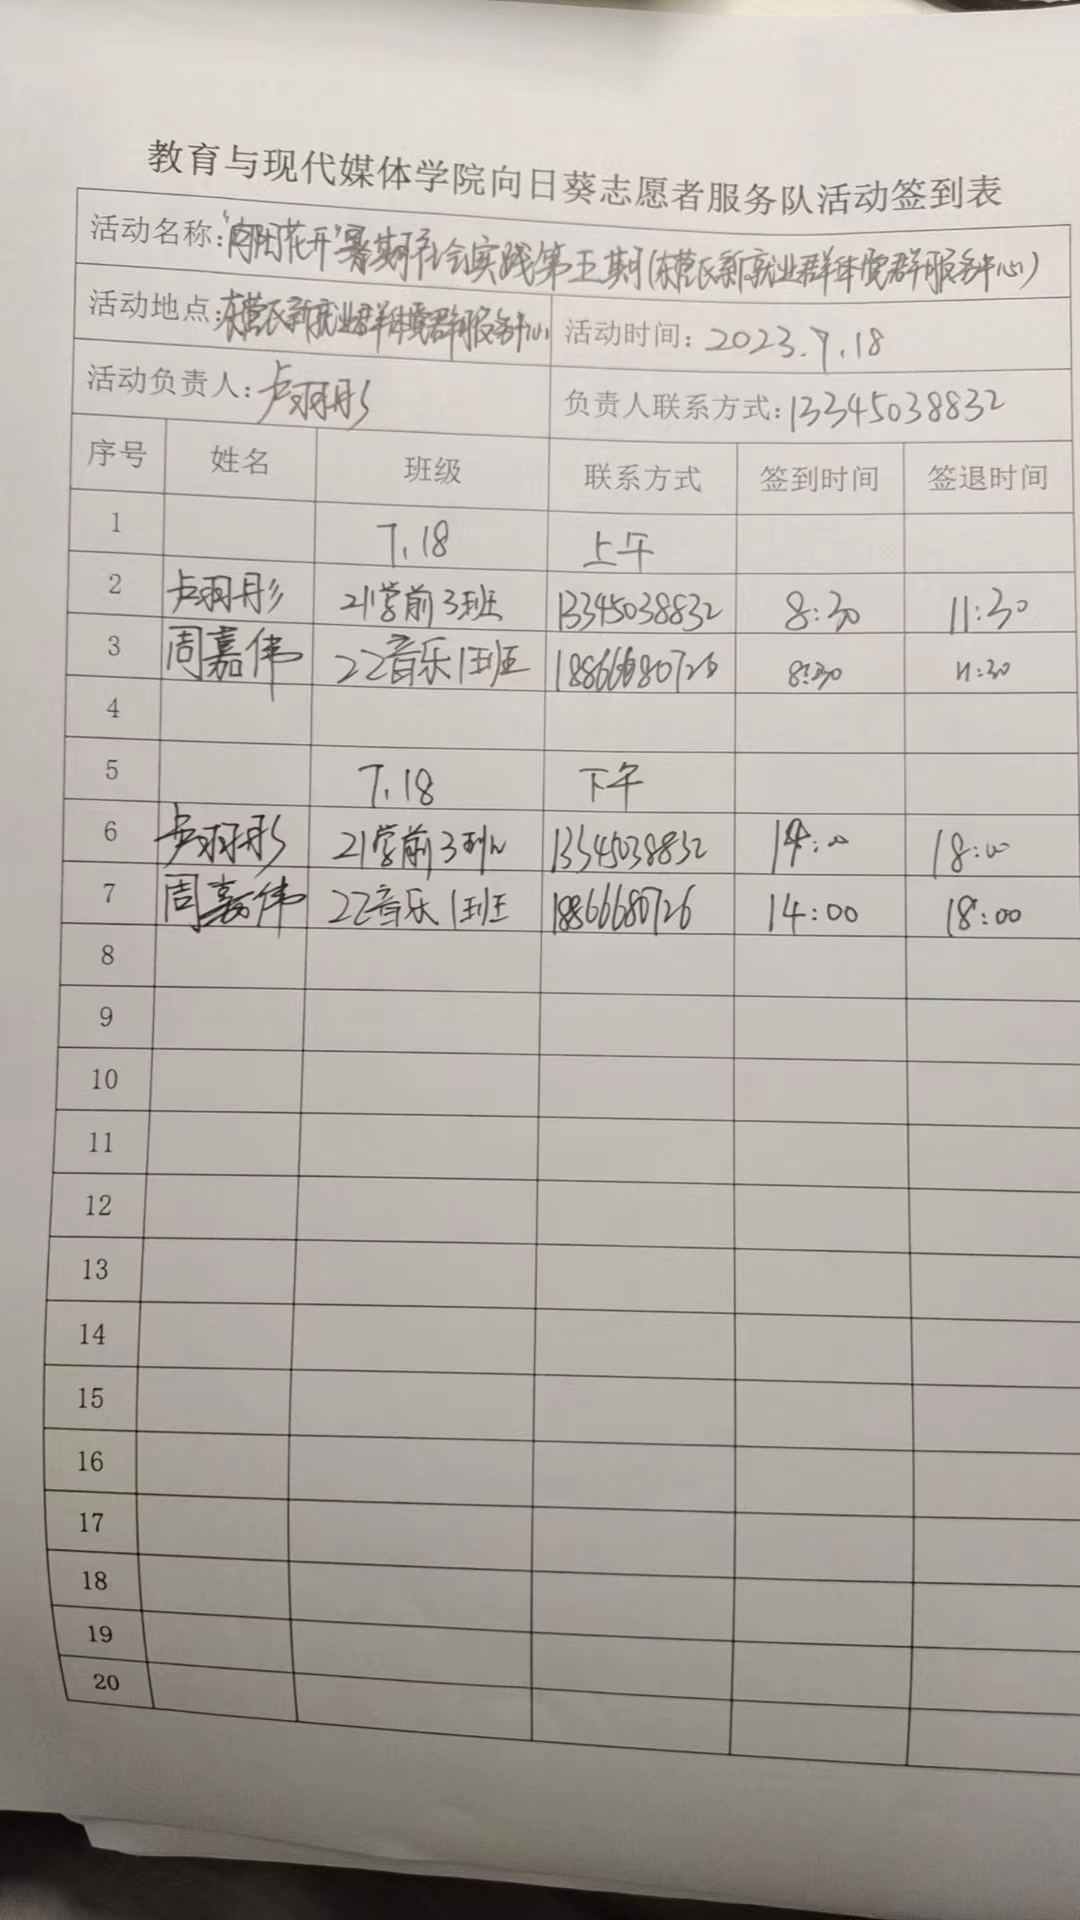 教育与现代媒体学院向日葵志愿者服务队活动签到表
活动名称:“向阳花开”暑期社会实践第五期(东营区新就业群体党群服务中心)
活动地点:东营区新就业群体党群服务中心 活动时间: 2023.7.18
活动负责人: 卢羽彤 负责人联系方式: 13345038832
序号 姓名 班级 联系方式 签到时间 签退时间
1 7.18 上午
2 卢羽彤 21学前3班 13345038832 8:30 11:30
3 周嘉伟 22音乐1班 18866680726 8:30 11:30
4
5 7.18 下午
6 卢羽彤 21学前3班 13345038832 14:00 18:00
7 周嘉伟 22音乐1班 18866680726 14:00 18:00
8
9
10
11
12
13
14
15
16
17
18
19
20